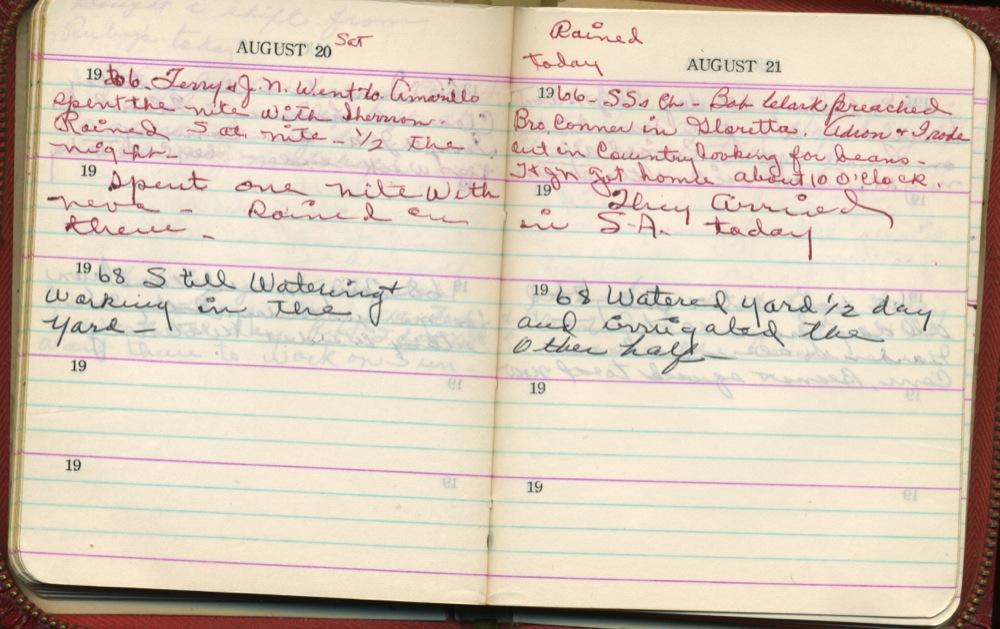 AUGUST 20 Sat
1966. Terry & J.N. Went to Amarillo
spent the nite with Sherron.
Rained S at nite - 1/2 the
night -
19
Spent one nite With
neva - Rained on
them -
1968 Still Watering &
Working in the
yard -
19
19
Rained
today
AUGUST 21
1966 - SS & Ch - Bob Clark preached
Bro. Conner in Gloretta. &
out in Country looking for beans -
T & Jn got home about 10 O'Clock.
19
They arrived
in S-A. today
1968 Watered yard 1/2 day
and irrigated the
Other half -
19
19